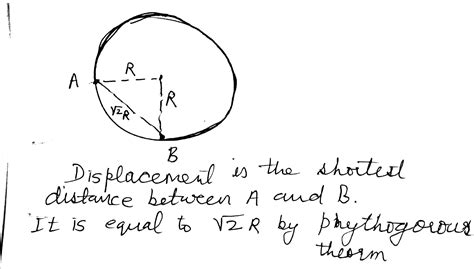 R
A
R
√2R
B
Displacement is the shortest
distance between A and B.
It is equal to √2 R by phythogorous
theorem